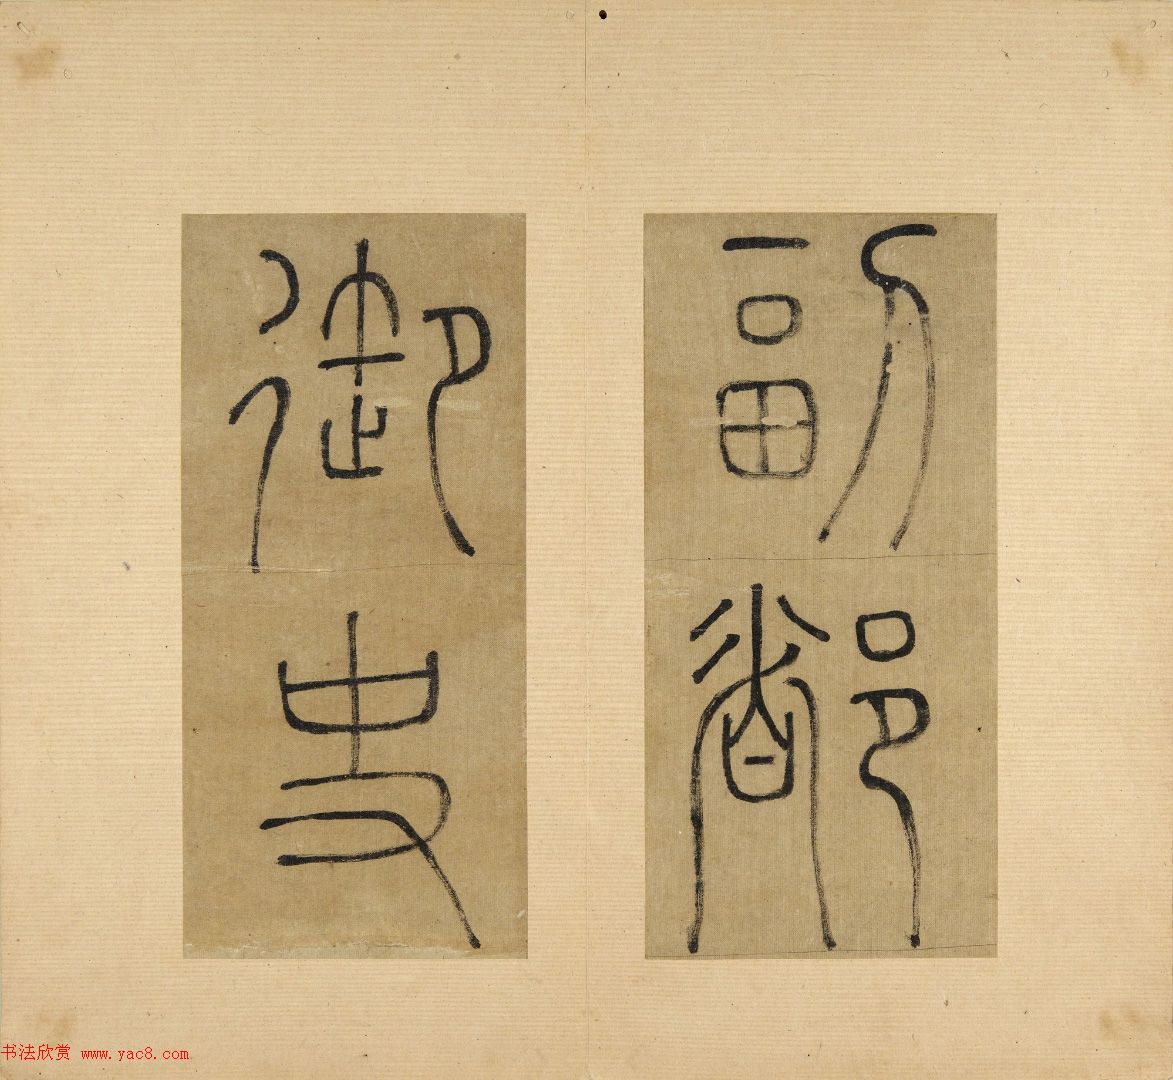 副都
御史
书法欣赏 www.yac8.com